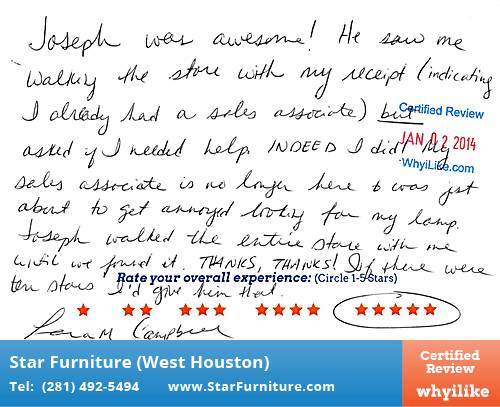 Joseph was awesome! He saw me
walking the store with my receipt (indicating
I already had a sales associate) but
Certified Review
asked if I needed help. INDEED I did! My
JAN 02 2014
WhyiLike.com
sales associate is no longer here & was just
about to get annoyed looking for my lamp.
Joseph walked the entire store with me
until we found it. THANKS, THANKS! If there were
Rate your overall experience: (Circle 1-5 Stars)
ten stars I'd give him that.
Campbell
Star Furniture (West Houston)
Tel: (281) 492-5494 www.StarFurniture.com
Certified
Review
whyilike